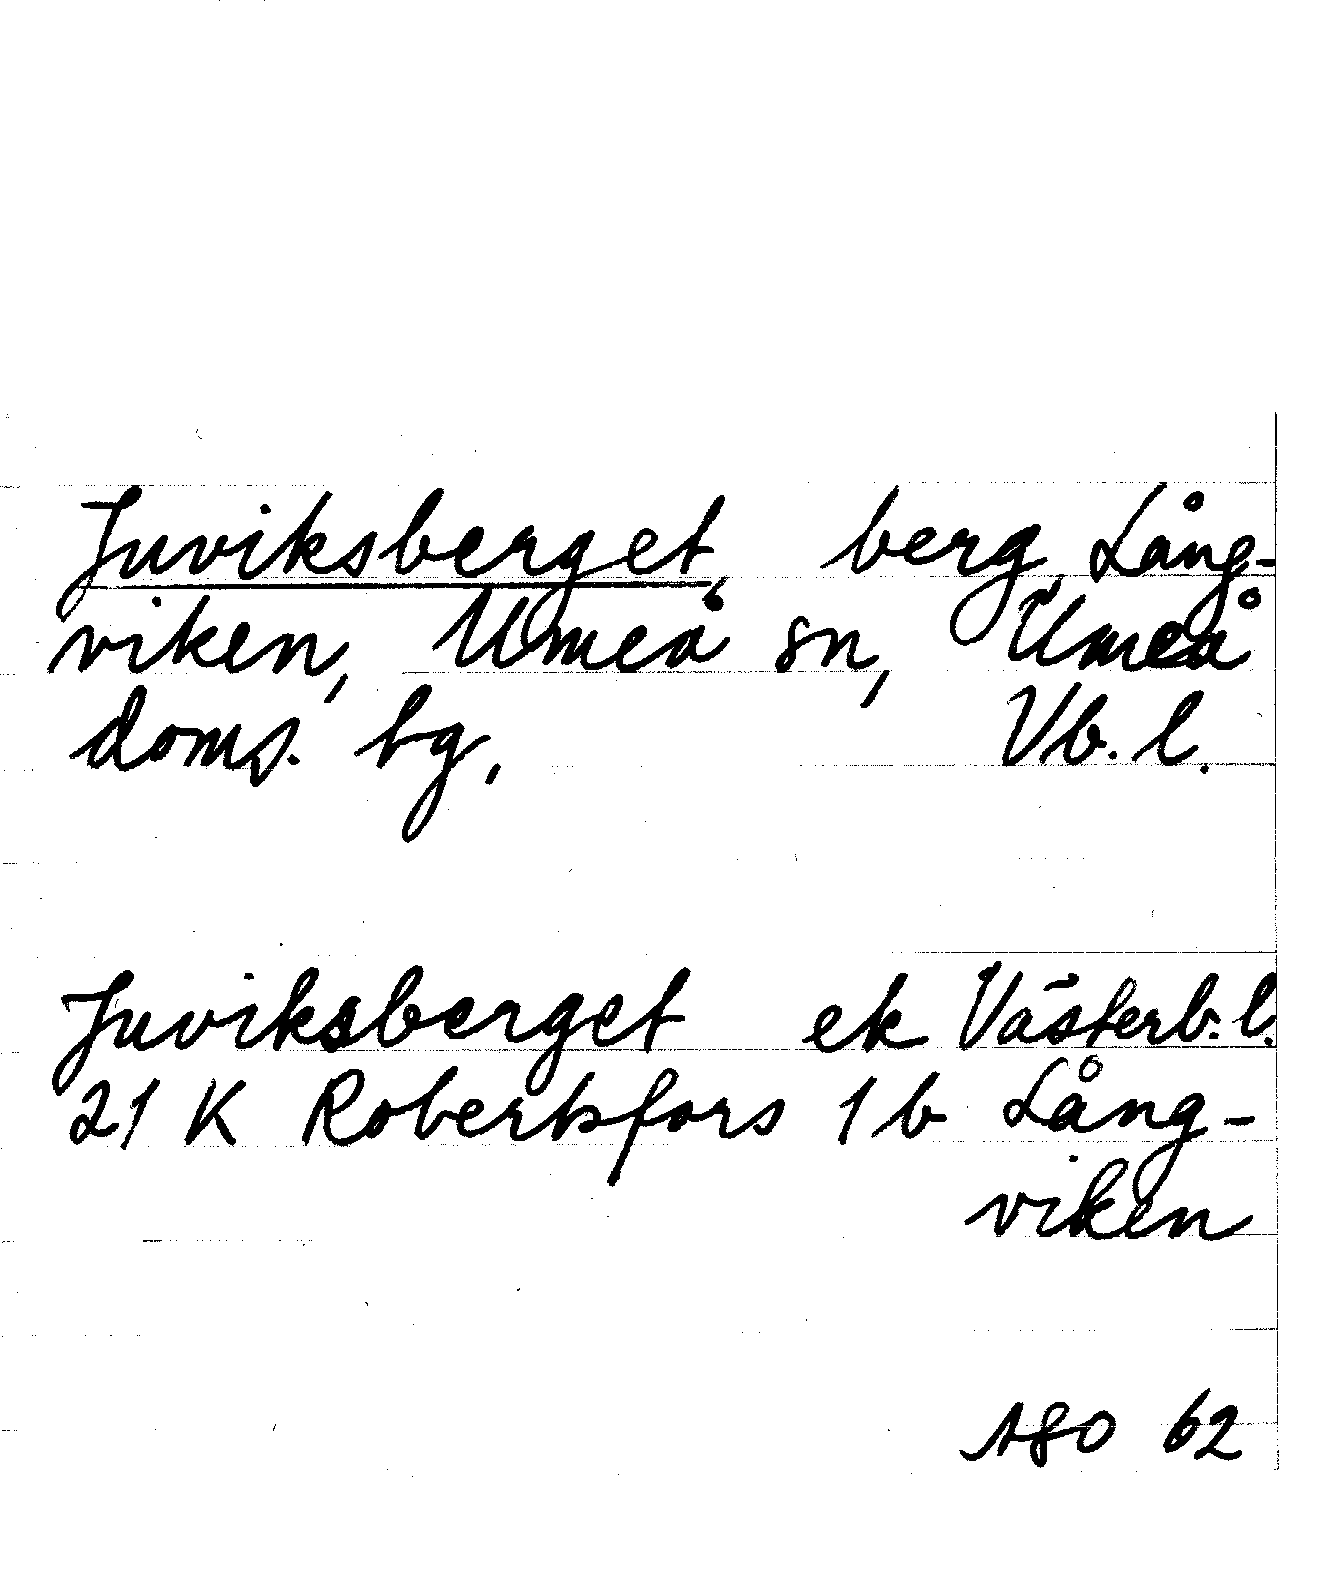 Juviksberget, berg, Lång-
viken, Umeå sn, Umeå
doms. bg. Vb. l.
Juviksberget ek Västerb. l.
21 K Robertsfors 1 b Lång-
viken
ASO 62